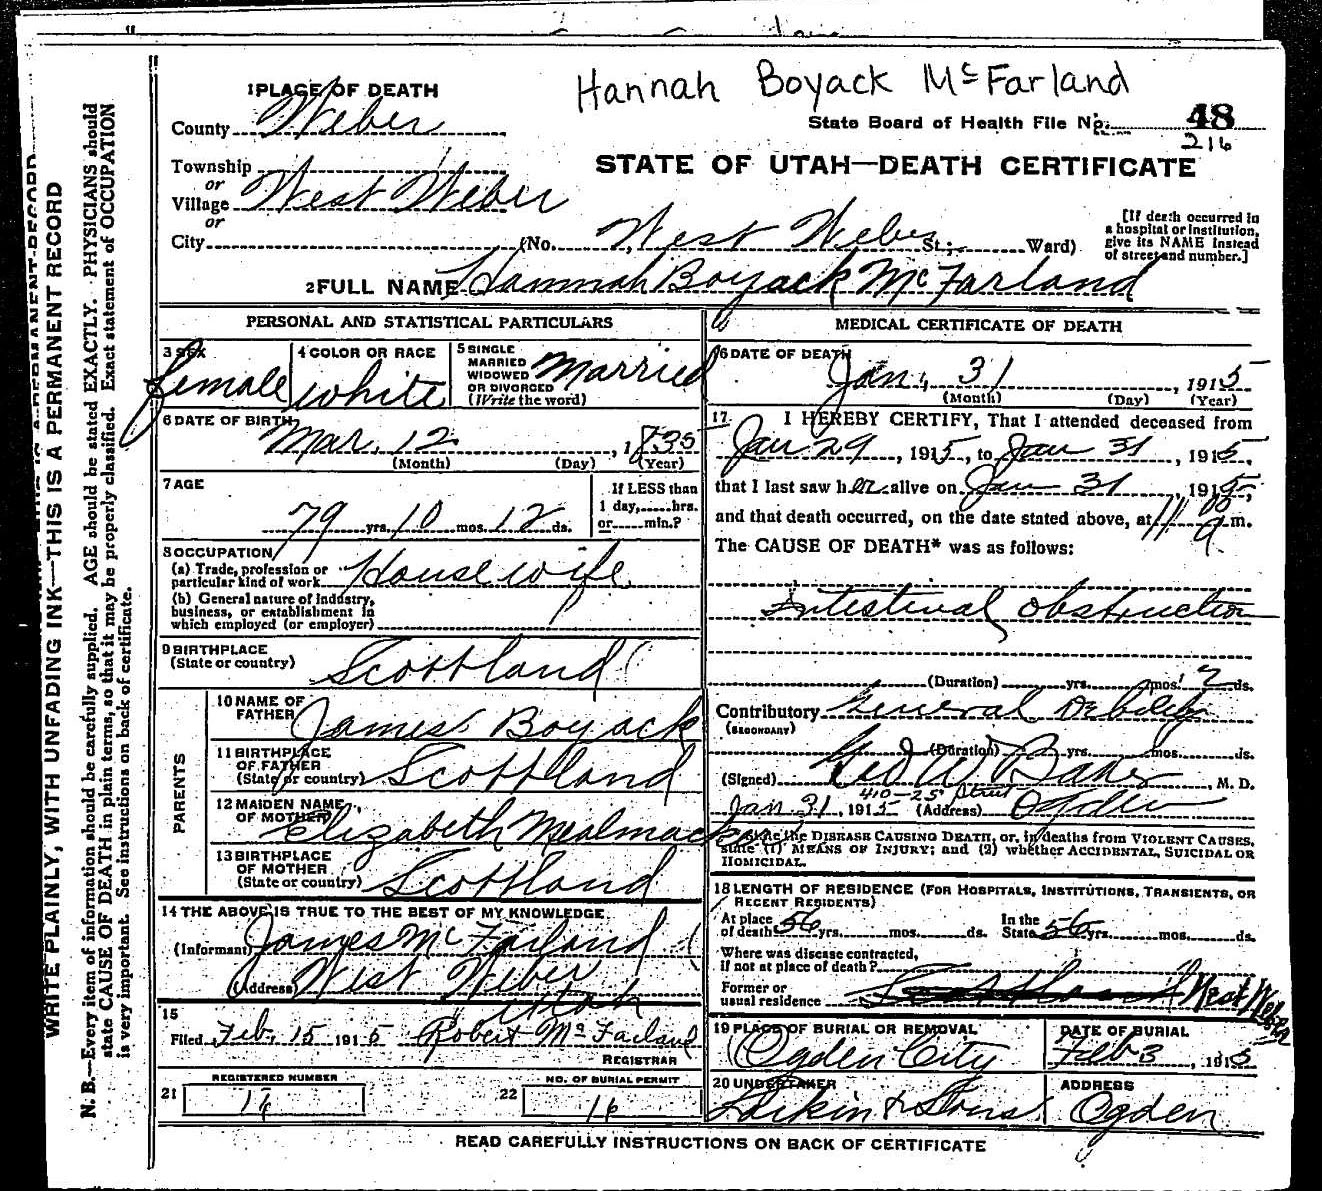 Hannah Boyack McFarland
1 PLACE OF DEATH
County Weber
State Board of Health File No. 48
216
Township
or
Village West Weber
or
City (No. West Weber St.; Ward)
STATE OF UTAH—DEATH CERTIFICATE
[If death occurred in
a hospital or institution,
give its NAME instead
of street and number.]
2 FULL NAME Hannah Boyack McFarland
PERSONAL AND STATISTICAL PARTICULARS
3 SEX
female
4 COLOR OR RACE
white
5 SINGLE
MARRIED
WIDOWED
OR DIVORCED
(Write the word)
Married
6 DATE OF BIRTH
Mar. 12, 1835
(Month) (Day) (Year)
7 AGE
79 yrs. 10 mos. 12 ds.
If LESS than
1 day,.....hrs.
or.....min.?
8 OCCUPATION
(a) Trade, profession or
particular kind of work Housewife
(b) General nature of industry,
business, or establishment in
which employed (or employer)
9 BIRTHPLACE
(State or country) Scottland
PARENTS
10 NAME OF
FATHER James Boyack
11 BIRTHPLACE
OF FATHER
(State or country) Scottland
12 MAIDEN NAME
OF MOTHER Elizabeth Mealmack
13 BIRTHPLACE
OF MOTHER
(State or country) Scottland
14 THE ABOVE IS TRUE TO THE BEST OF MY KNOWLEDGE
(Informant) James McFarland
(Address) West Weber
Utah
15
Filed Feb. 15 1915 Robert McFarland
REGISTRAR
REGISTERED NUMBER
21
NO. OF BURIAL PERMIT
22 16
MEDICAL CERTIFICATE OF DEATH
16 DATE OF DEATH
Jan. 31, 1915
(Month) (Day) (Year)
17 I HEREBY CERTIFY, That I attended deceased from
Jan 29, 1915, to Jan 31, 1915,
that I last saw her alive on Jan 31, 1915,
and that death occurred, on the date stated above, at 11 00 a m.
The CAUSE OF DEATH* was as follows:
Intestinal obstruction
(Duration) yrs. mos. 2 ds.
Contributory General Debility
(SECONDARY)
(Duration) yrs. mos. ds.
(Signed) Geo W Baker, M. D.
Jan. 31, 1915 (Address) 410-25 Street Ogden
* State the DISEASE CAUSING DEATH, or, in deaths from VIOLENT CAUSES,
state (1) MEANS OF INJURY; and (2) whether ACCIDENTAL, SUICIDAL OR
HOMICIDAL.
18 LENGTH OF RESIDENCE (FOR HOSPITALS, INSTITUTIONS, TRANSIENTS, OR
RECENT RESIDENTS)
At place
of death 56 yrs. mos. ds.
In the
State 56 yrs. mos. ds.
Where was disease contracted,
if not at place of death?
Former or
usual residence Scottland West Weber
19 PLACE OF BURIAL OR REMOVAL
Ogden City
DATE OF BURIAL
Feb 3, 1915
20 UNDERTAKER
Larkin & Sons
ADDRESS
Ogden
READ CAREFULLY INSTRUCTIONS ON BACK OF CERTIFICATE
WRITE PLAINLY, WITH UNFADING INK—THIS IS A PERMANENT RECORD
N. B.—Every item of information should be carefully supplied. AGE should be stated EXACTLY. PHYSICIANS should
state CAUSE OF DEATH in plain terms, so that it may be properly classified. Exact statement of OCCUPATION
is very important. See instructions on back of certificate.